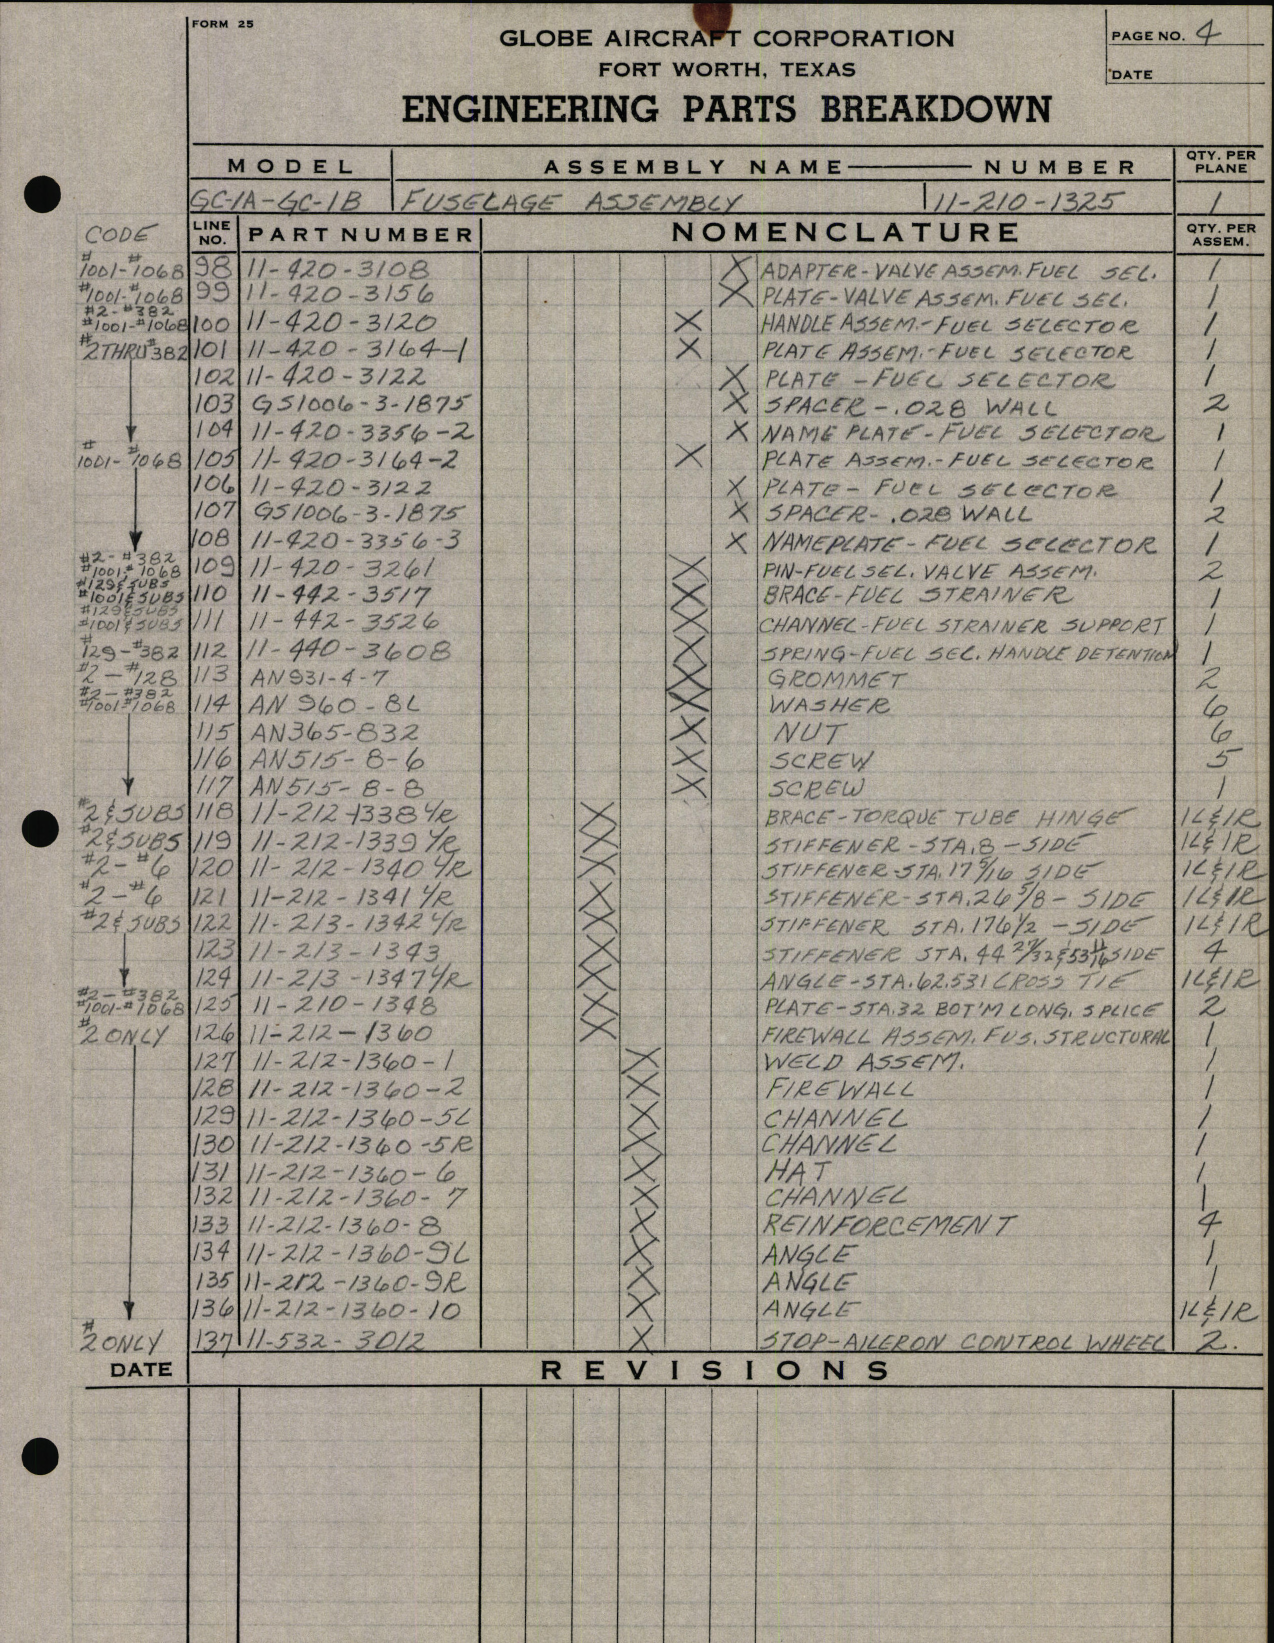 FORM 25
GLOBE AIRCRAFT CORPORATION
FORT WORTH, TEXAS
ENGINEERING PARTS BREAKDOWN
PAGE NO. 4
DATE
MODEL ASSEMBLY NAME — NUMBER QTY. PER PLANE
GC-1A-GC-1B FUSELAGE ASSEMBLY 11-210-1325 1
CODE LINE NO. PART NUMBER NOMENCLATURE QTY. PER ASSEM.
#1001-#1068 98 11-420-3108 X ADAPTER-VALVE ASSEM. FUEL SEL. 1
#1001-#1068 99 11-420-3156 X PLATE-VALVE ASSEM. FUEL SEL. 1
#2-#382 #1001-#1068 100 11-420-3120 X HANDLE ASSEM.-FUEL SELECTOR 1
#2 THRU #382 101 11-420-3164-1 X PLATE ASSEM.-FUEL SELECTOR 1
102 11-420-3122 X PLATE-FUEL SELECTOR 1
103 GS1006-3-1875 X SPACER-.028 WALL 2
104 11-420-3356-2 X NAME PLATE-FUEL SELECTOR 1
#1001-#1068 105 11-420-3164-2 X PLATE ASSEM.-FUEL SELECTOR 1
106 11-420-3122 X PLATE-FUEL SELECTOR 1
107 GS1006-3-1875 X SPACER-.028 WALL 2
108 11-420-3356-3 X NAMEPLATE-FUEL SELECTOR 1
#2-#382 #1001-#1068 109 11-420-3261 X PIN-FUEL SEL. VALVE ASSEM. 2
#129 & SUBS #1001 & SUBS 110 11-442-3517 X BRACE-FUEL STRAINER 1
#129 & SUBS #1001 & SUBS 111 11-442-3526 X CHANNEL-FUEL STRAINER SUPPORT 1
#129-#382 112 11-440-3608 X SPRING-FUEL SEL. HANDLE DETENTION 1
#2-#128 113 AN931-4-7 X GROMMET 2
#2-#382 #1001-#1068 114 AN 960-8L X WASHER 6
115 AN365-832 X NUT 6
116 AN515-8-6 X SCREW 5
117 AN515-8-8 X SCREW 1
#2 & SUBS 118 11-212-1338 L/R X BRACE-TORQUE TUBE HINGE 1L & 1R
#2 & SUBS 119 11-212-1339 L/R X STIFFENER-STA.8-SIDE 1L & 1R
#2-#6 120 11-212-1340 L/R X STIFFENER-STA.17 5/16 SIDE 1L & 1R
#2-#6 121 11-212-1341 L/R X STIFFENER-STA.26 5/8-SIDE 1L & 1R
#2 & SUBS 122 11-213-1342 L/R X STIFFENER STA.176 1/2-SIDE 1L & 1R
123 11-213-1343 X STIFFENER STA.44 27/32 & 53 11/16 SIDE 4
124 11-213-1347 L/R X ANGLE-STA.62.531 CROSS TIE 1L & 1R
#2-#382 #1001-#1068 125 11-210-1348 X PLATE-STA.32 BOT'M LONG. SPLICE 2
#2 ONLY 126 11-212-1360 X FIREWALL ASSEM. FUS. STRUCTURAL 1
127 11-212-1360-1 X WELD ASSEM. 1
128 11-212-1360-2 X FIREWALL 1
129 11-212-1360-5L X CHANNEL 1
130 11-212-1360-5R X CHANNEL 1
131 11-212-1360-6 X HAT 1
132 11-212-1360-7 X CHANNEL 1
133 11-212-1360-8 X REINFORCEMENT 4
134 11-212-1360-9L X ANGLE 1
135 11-212-1360-9R X ANGLE 1
136 11-212-1360-10 X ANGLE 1L & 1R
#2 ONLY 137 11-532-3012 X STOP-AILERON CONTROL WHEEL 2.
DATE REVISIONS